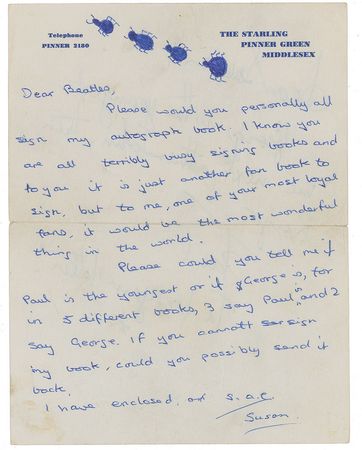 Telephone
PINNER 2180
THE STARLING
PINNER GREEN
MIDDLESEX
Dear Beatles,
Please would you personally all
sign my autograph book. I know you
are all terribly busy signing books and
to you it is just another fan book to
sign, but to me, one of your most loyal
fans, it would be the most wonderful
thing in the world.
Please could you tell me if
Paul is the youngest or if George is, for
in 5 different books, 3 say Paul is and 2
say George. If you cannott sign
my book, could you possibly send it
back.
I have enclosed an s.a.e.
Susan.